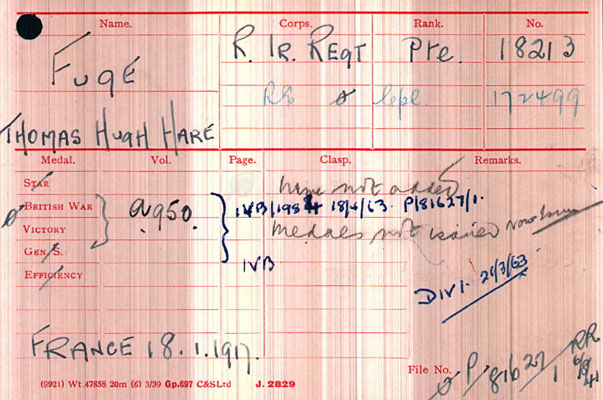 Name. Corps. Rank. No.
Fuge R. Ir. Regt Pte. 18213
RE Cpl. 172499
Thomas Hugh Hare
Medal. Vol. Page. Clasp. Remarks.
Star have not added
British War IVB/1984 18/4/63. P/81627/1.
Victory medals not issued Now
Gen. S.
Efficiency IVB
DIVI. 21/3/63
France 18.1.1917.
File No. P/81627/1 RR
(9921) Wt. 47858 20m (6) 3/39 Gp.697 C&SLtd J. 2829